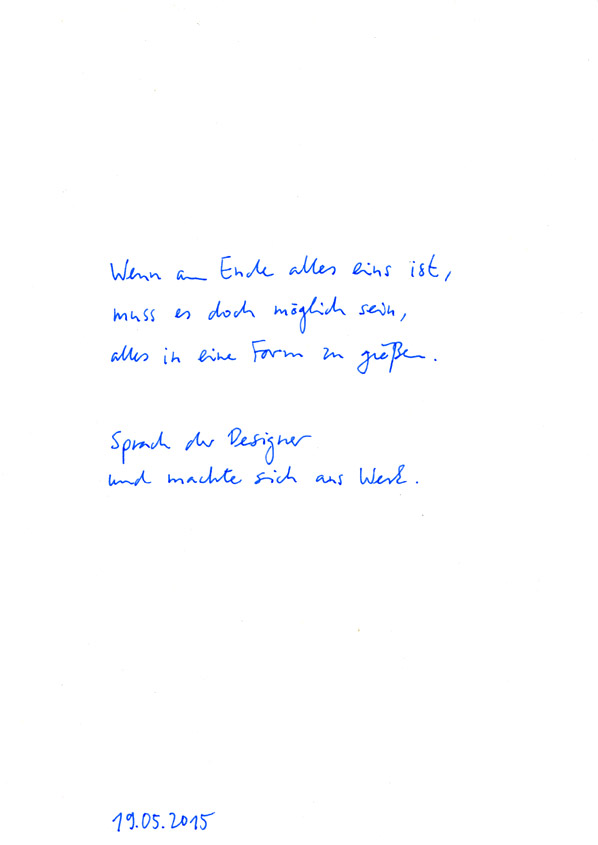 Wenn am Ende alles eins ist,
muss es doch möglich sein,
alles in eine Form zu gießen.
Sprach der Designer
und machte sich ans Werk.
19.05.2015